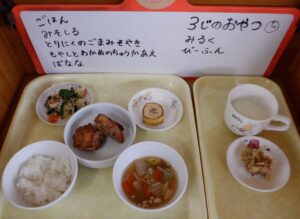 ごはん
みそしる
とりにくのごまみそやき
もやしとわかめのちゅうかあえ
ばなな
3じのおやつ
みるく
びーふん